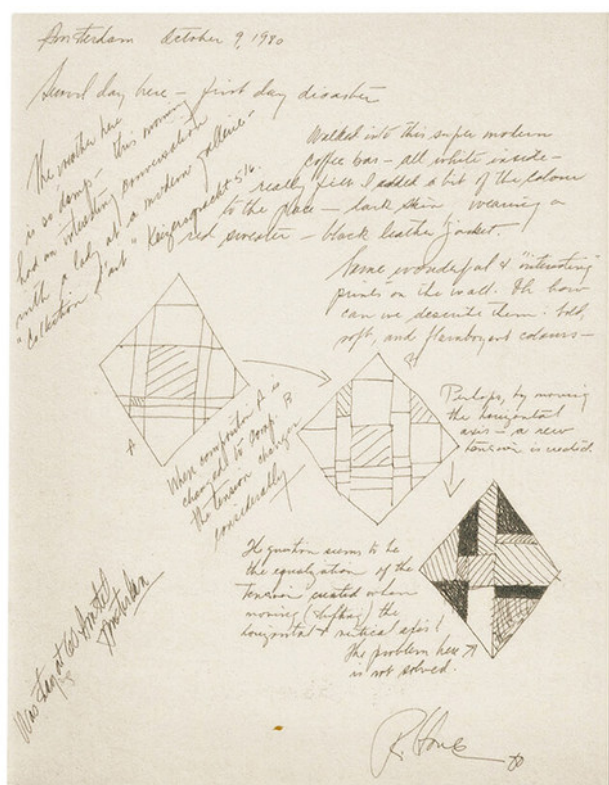 Amsterdam October 9, 1980
Second day here – first day disaster
The weather here
is so damp – this morning
had an interesting conversation
with a lady at a modern gallerie –
"Collection d'art" Keizersgracht 516.
Walked into this super modern
coffee bar – all white inside –
really felt I added a bit of the colour
to the place – dark skin wearing a
red sweater – black leather jacket.
Some wonderful & "interesting"
prints on the wall. Oh how
can we describe them: bold,
soft, and flamboyant colours –
A
B
When composition A is
changed to comp. B
the tension changes
considerably
Perhaps, by moving
the horizontal
axis – a new
tension is created.
The question seems to be
the equalization of the
tension created when
moving (shifting) the
horizontal & vertical axis!
The problem here
is not solved.
Was at 60 Amstel
Amsterdam
R. 80